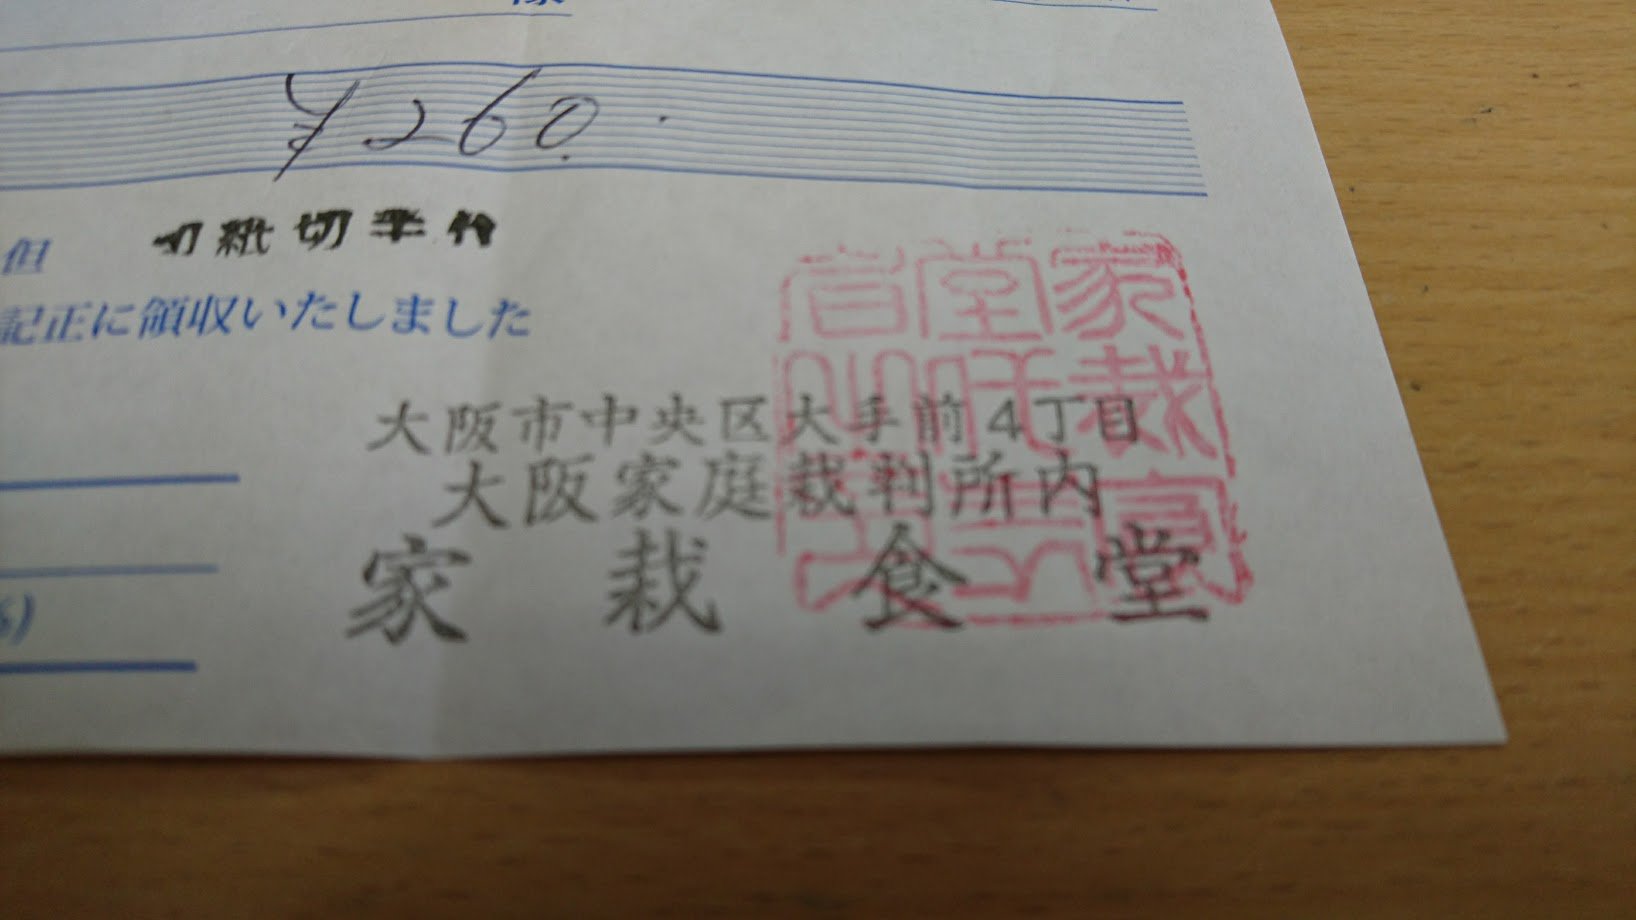 様
¥260.
但 印紙切手代
記正に領収いたしました
大阪市中央区大手前4丁目
大阪家庭裁判所内
家裁食堂
%)